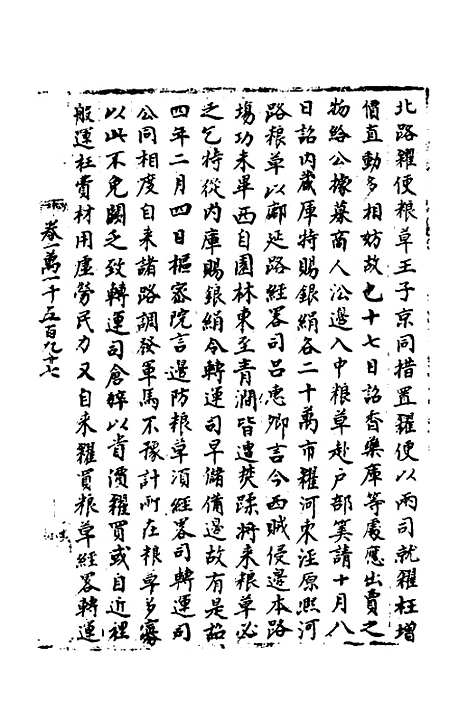 北路糴便粮草王子京同措置糴便以两司就糴枉增
價直動多相妨故也十七日詔香藥庫等處應出賣之
物給公據募商人㳂邊入中粮草赴户部筭請十月八
日詔内蔵庫特賜銀絹各二十萬市糴河東泾原熈河
路粮草以鄜延路經畧司吕惠卿言今西賊侵邊本路
塲功未畢西自園林東至青澗皆遭焚蹂将来粮草必
乏乞特從内庫賜銀絹令轉運司早儲俻邊故有是詔
四年二月四日樞宻院言邊防粮草項經畧司轉運司
公同相度自来諸路調發軍馬不豫計所在粮草多寡
以此不免闕乏致轉運司倉猝以貴價糴買或自近裡
般運枉費材用虚勞民力又自来糴買粮草經畧轉運
卷一萬一千五百九十七